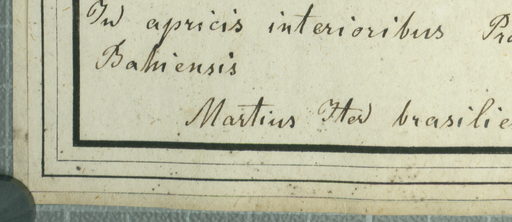 In apricis interioribus Pro
Bahiensis
Martius Iter brasilie